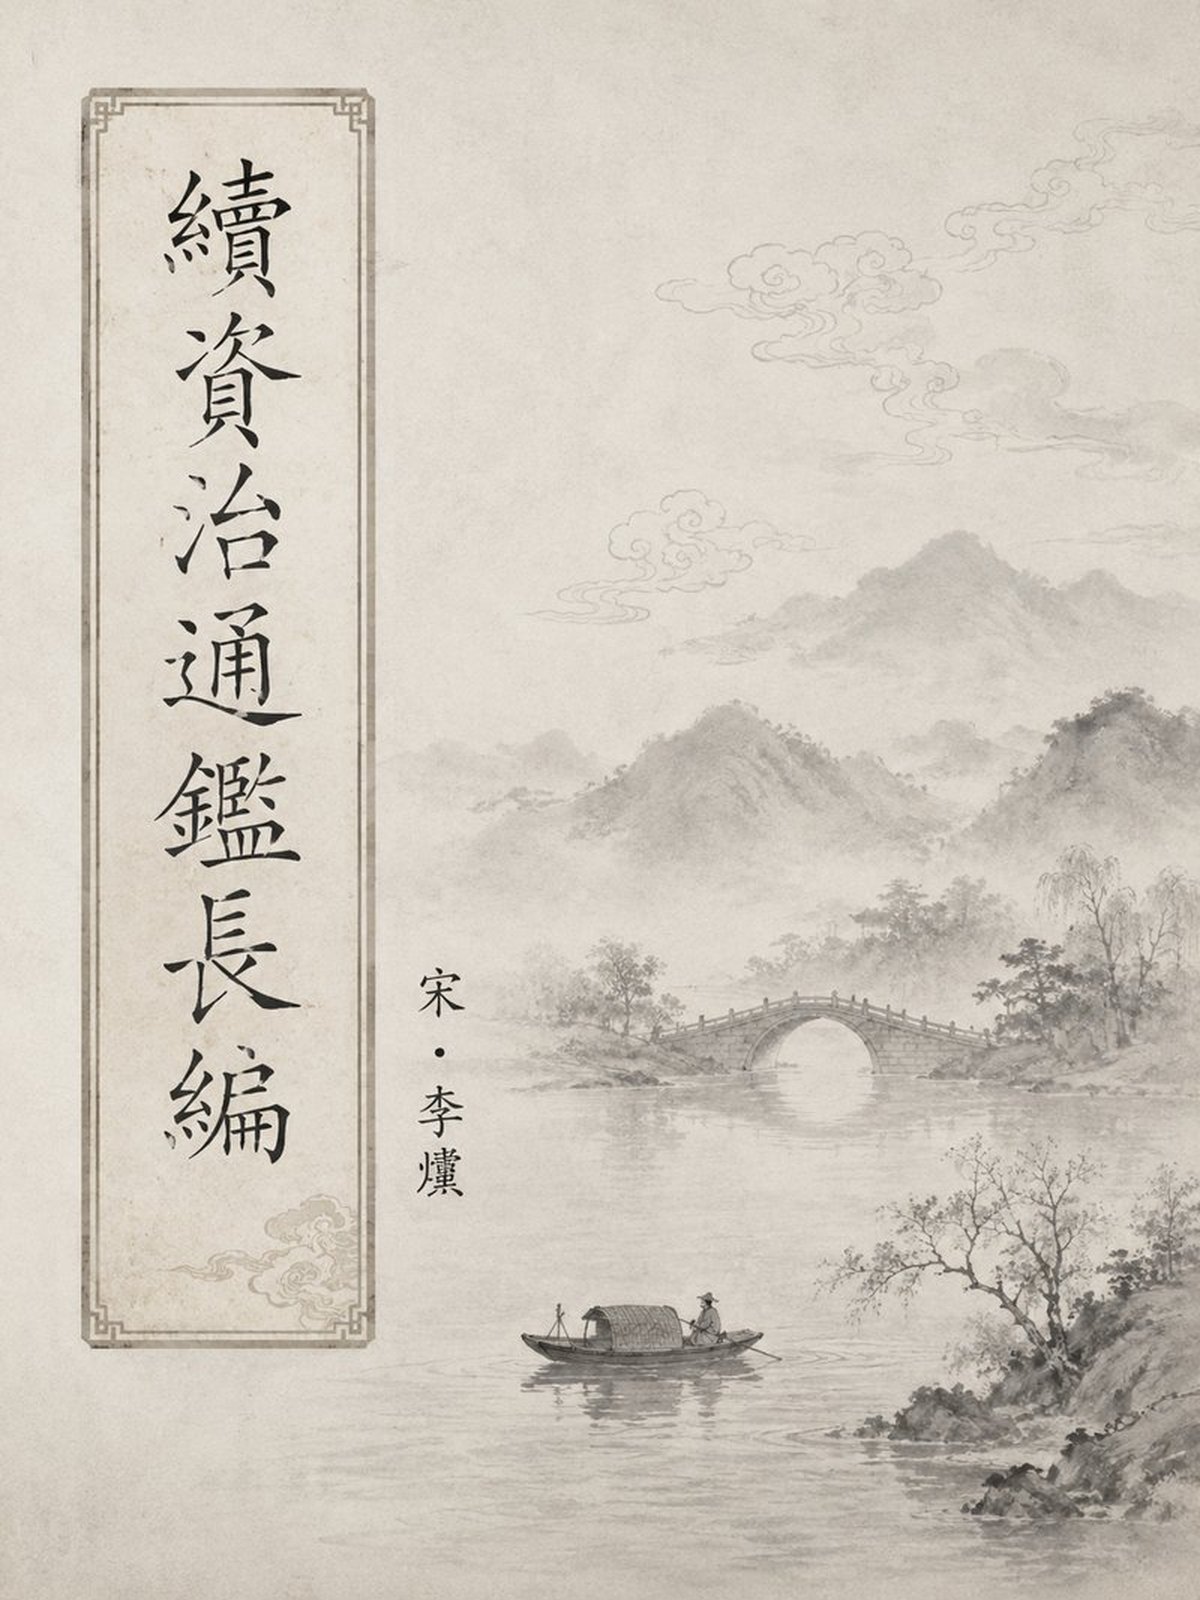 續資治通鑑長編
宋・李燻